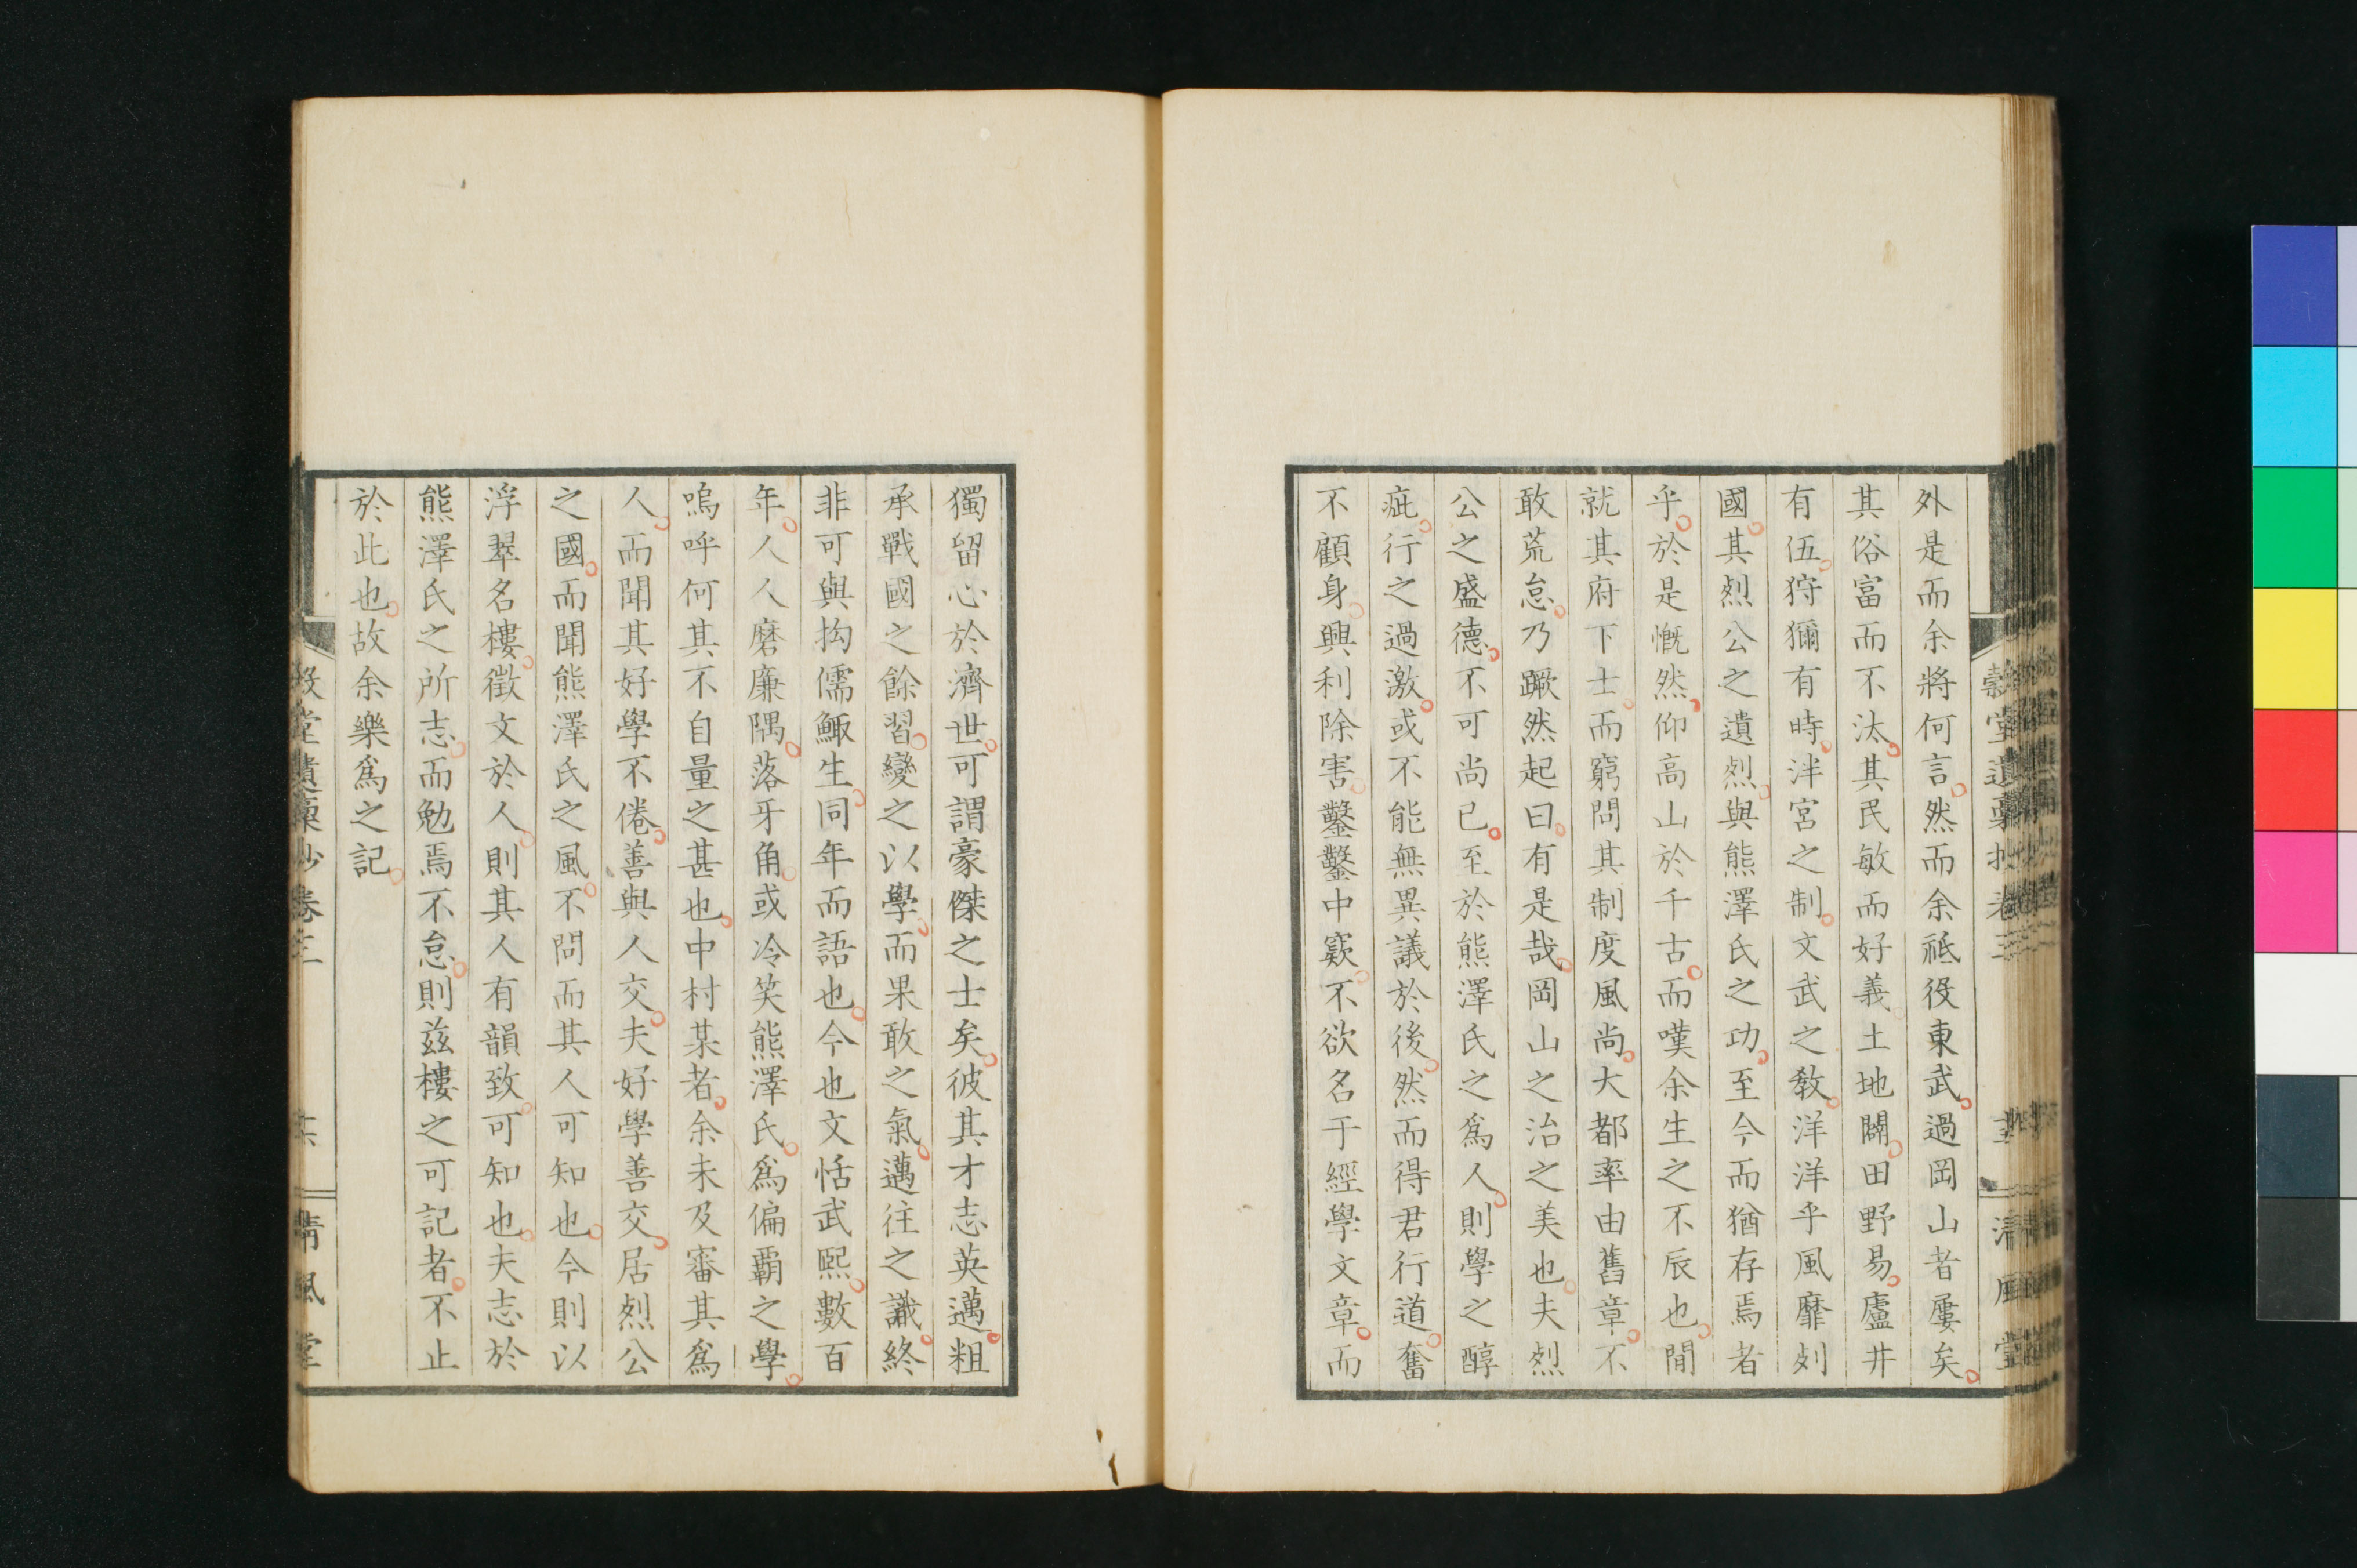 外是而余將何言。然而余祗役東武。過岡山者屢矣。
其俗富而不汰。其民敏而好義。土地闢。田野易。廬井
有伍。狩獮有時。泮宮之制。文武之教。洋洋乎風靡列
國。其烈公之遺烈。與熊澤氏之功。至今而猶存焉者
乎。於是慨然。仰高山於千古。而嘆余生之不辰也。間
就其府下士。而窮問其制度風尚。大都率由舊章。不
敢荒怠。乃蹶然起曰。有是哉。岡山之治之美也。夫烈
公之盛德。不可尚已。至於熊澤氏之爲人。則學之醇
疵。行之過激。或不能無異議於後。然而得君行道。奮
不顧身。興利除害。鑿鑿中窾。不欲名于經學文章。而
獨留心於濟世。可謂豪傑之士矣。彼其才志英邁。粗
承戰國之餘習。變之以學。而果敢之氣。邁往之識。終
非可與拘儒鯫生。同年而語也。今也文恬武熙。數百
年。人人磨廉隅。落牙角。或冷笑熊澤氏。爲偏覇之學。
嗚呼何其不自量之甚也。中村某者。余未及審其爲
人。而聞其好學不倦。善與人交。夫好學善交。居烈公
之國。而聞熊澤氏之風。不問而其人可知也。今則以
浮翠名樓。徵文於人。則其人有韻致。可知也。夫志於
熊澤氏之所志。而勉焉不怠。則茲樓之可記者。不止
於此也。故余樂爲之記。